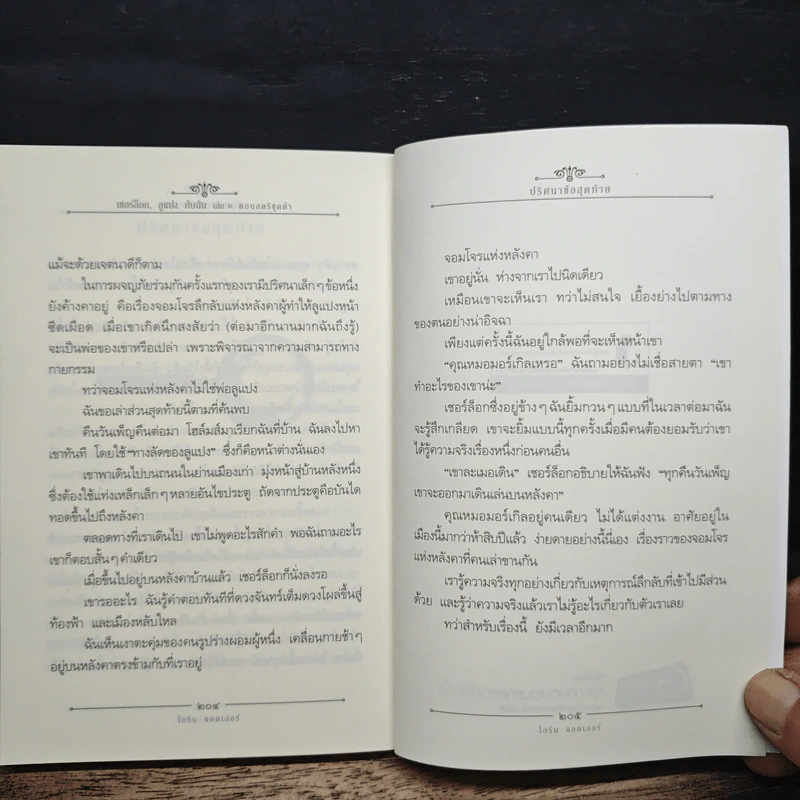 เชอร์ล็อก, ลูแปง กับฉัน เล่ม ๑ ตอนสตรีชุดดำ
แม้จะด้วยเจตนาดีก็ตาม
ในการผจญภัยร่วมกันครั้งแรกของเรามีปริศนาเล็กๆ ข้อหนึ่ง
ยังค้างคาอยู่ คือเรื่องจอมโจรลึกลับแห่งหลังคาผู้ทำให้ลูแปงหน้า
ซีดเผือด เมื่อเขาเกิดนึกสงสัยว่า (ต่อมาอีกนานมากฉันถึงรู้)
จะเป็นพ่อของเขาหรือเปล่า เพราะพิจารณาจากความสามารถทาง
กายกรรม
ทว่าจอมโจรแห่งหลังคาไม่ใช่พ่อลูแปง
ฉันขอเล่าส่วนสุดท้ายนี้ตามที่ค้นพบ
คืนวันเพ็ญคืนต่อมา โฮล์มส์มาเรียกฉันที่บ้าน ฉันลงไปหา
เขาทันที โดยใช้ “ทางลัดของลูแปง” ซึ่งก็คือหน้าต่างนั่นเอง
เขาพาเดินไปบนถนนในย่านเมืองเก่า มุ่งหน้าสู่บ้านหลังหนึ่ง
ซึ่งต้องใช้แท่งเหล็กเล็กๆ หลายอันไขประตู ถัดจากประตูคือบันได
ทอดขึ้นไปถึงหลังคา
ตลอดทางที่เราเดินไป เขาไม่พูดอะไรสักคำ พอฉันถามอะไร
เขาก็ตอบสั้นๆ คำเดียว
เมื่อขึ้นไปอยู่บนหลังคาบ้านแล้ว เชอร์ล็อกก็นั่งลงรอ
เขารออะไร ฉันรู้คำตอบทันทีที่ดวงจันทร์เต็มดวงโผล่ขึ้นสู่
ท้องฟ้า และเมืองหลับใหล
ฉันเห็นเงาตะคุ่มของคนรูปร่างผอมผู้หนึ่ง เคลื่อนกายช้าๆ
อยู่บนหลังคาตรงข้ามกับที่เราอยู่
๒๐๔
ไอรีน แอดเลอร์
ปริศนาข้อสุดท้าย
จอมโจรแห่งหลังคา
เขาอยู่นั่น ห่างจากเราไปนิดเดียว
เหมือนเขาจะเห็นเรา ทว่าไม่สนใจ เยื้องย่างไปตามทาง
ของตนอย่างน่าอิจฉา
เพียงแต่ครั้งนี้ฉันอยู่ใกล้พอที่จะเห็นหน้าเขา
“คุณหมอมอร์เกิลเหรอ” ฉันถามอย่างไม่เชื่อสายตา “เขา
ทำอะไรของเขาน่ะ”
เชอร์ล็อกซึ่งอยู่ข้างๆ ฉันยิ้มกวนๆ แบบที่ในเวลาต่อมาฉัน
จะรู้สึกเกลียด เขาจะยิ้มแบบนี้ทุกครั้งเมื่อมีคนต้องยอมรับว่าเขา
ได้รู้ความจริงเรื่องหนึ่งก่อนคนอื่น
“เขาละเมอเดิน” เชอร์ล็อกอธิบายให้ฉันฟัง “ทุกคืนวันเพ็ญ
เขาจะออกมาเดินเล่นบนหลังคา”
คุณหมอมอร์เกิลอยู่คนเดียว ไม่ได้แต่งงาน อาศัยอยู่ใน
เมืองนี้มากว่าห้าสิบปีแล้ว ง่ายดายอย่างนี้นี่เอง เรื่องราวของจอมโจร
แห่งหลังคาที่คนเล่าขานกัน
เรารู้ความจริงทุกอย่างเกี่ยวกับเหตุการณ์ลึกลับที่เข้าไปมีส่วน
ด้วย และรู้ว่าความจริงแล้วเราไม่รู้อะไรเกี่ยวกับตัวเราเลย
ทว่าสำหรับเรื่องนี้ ยังมีเวลาอีกมาก
๒๐๕
ไอรีน แอดเลอร์